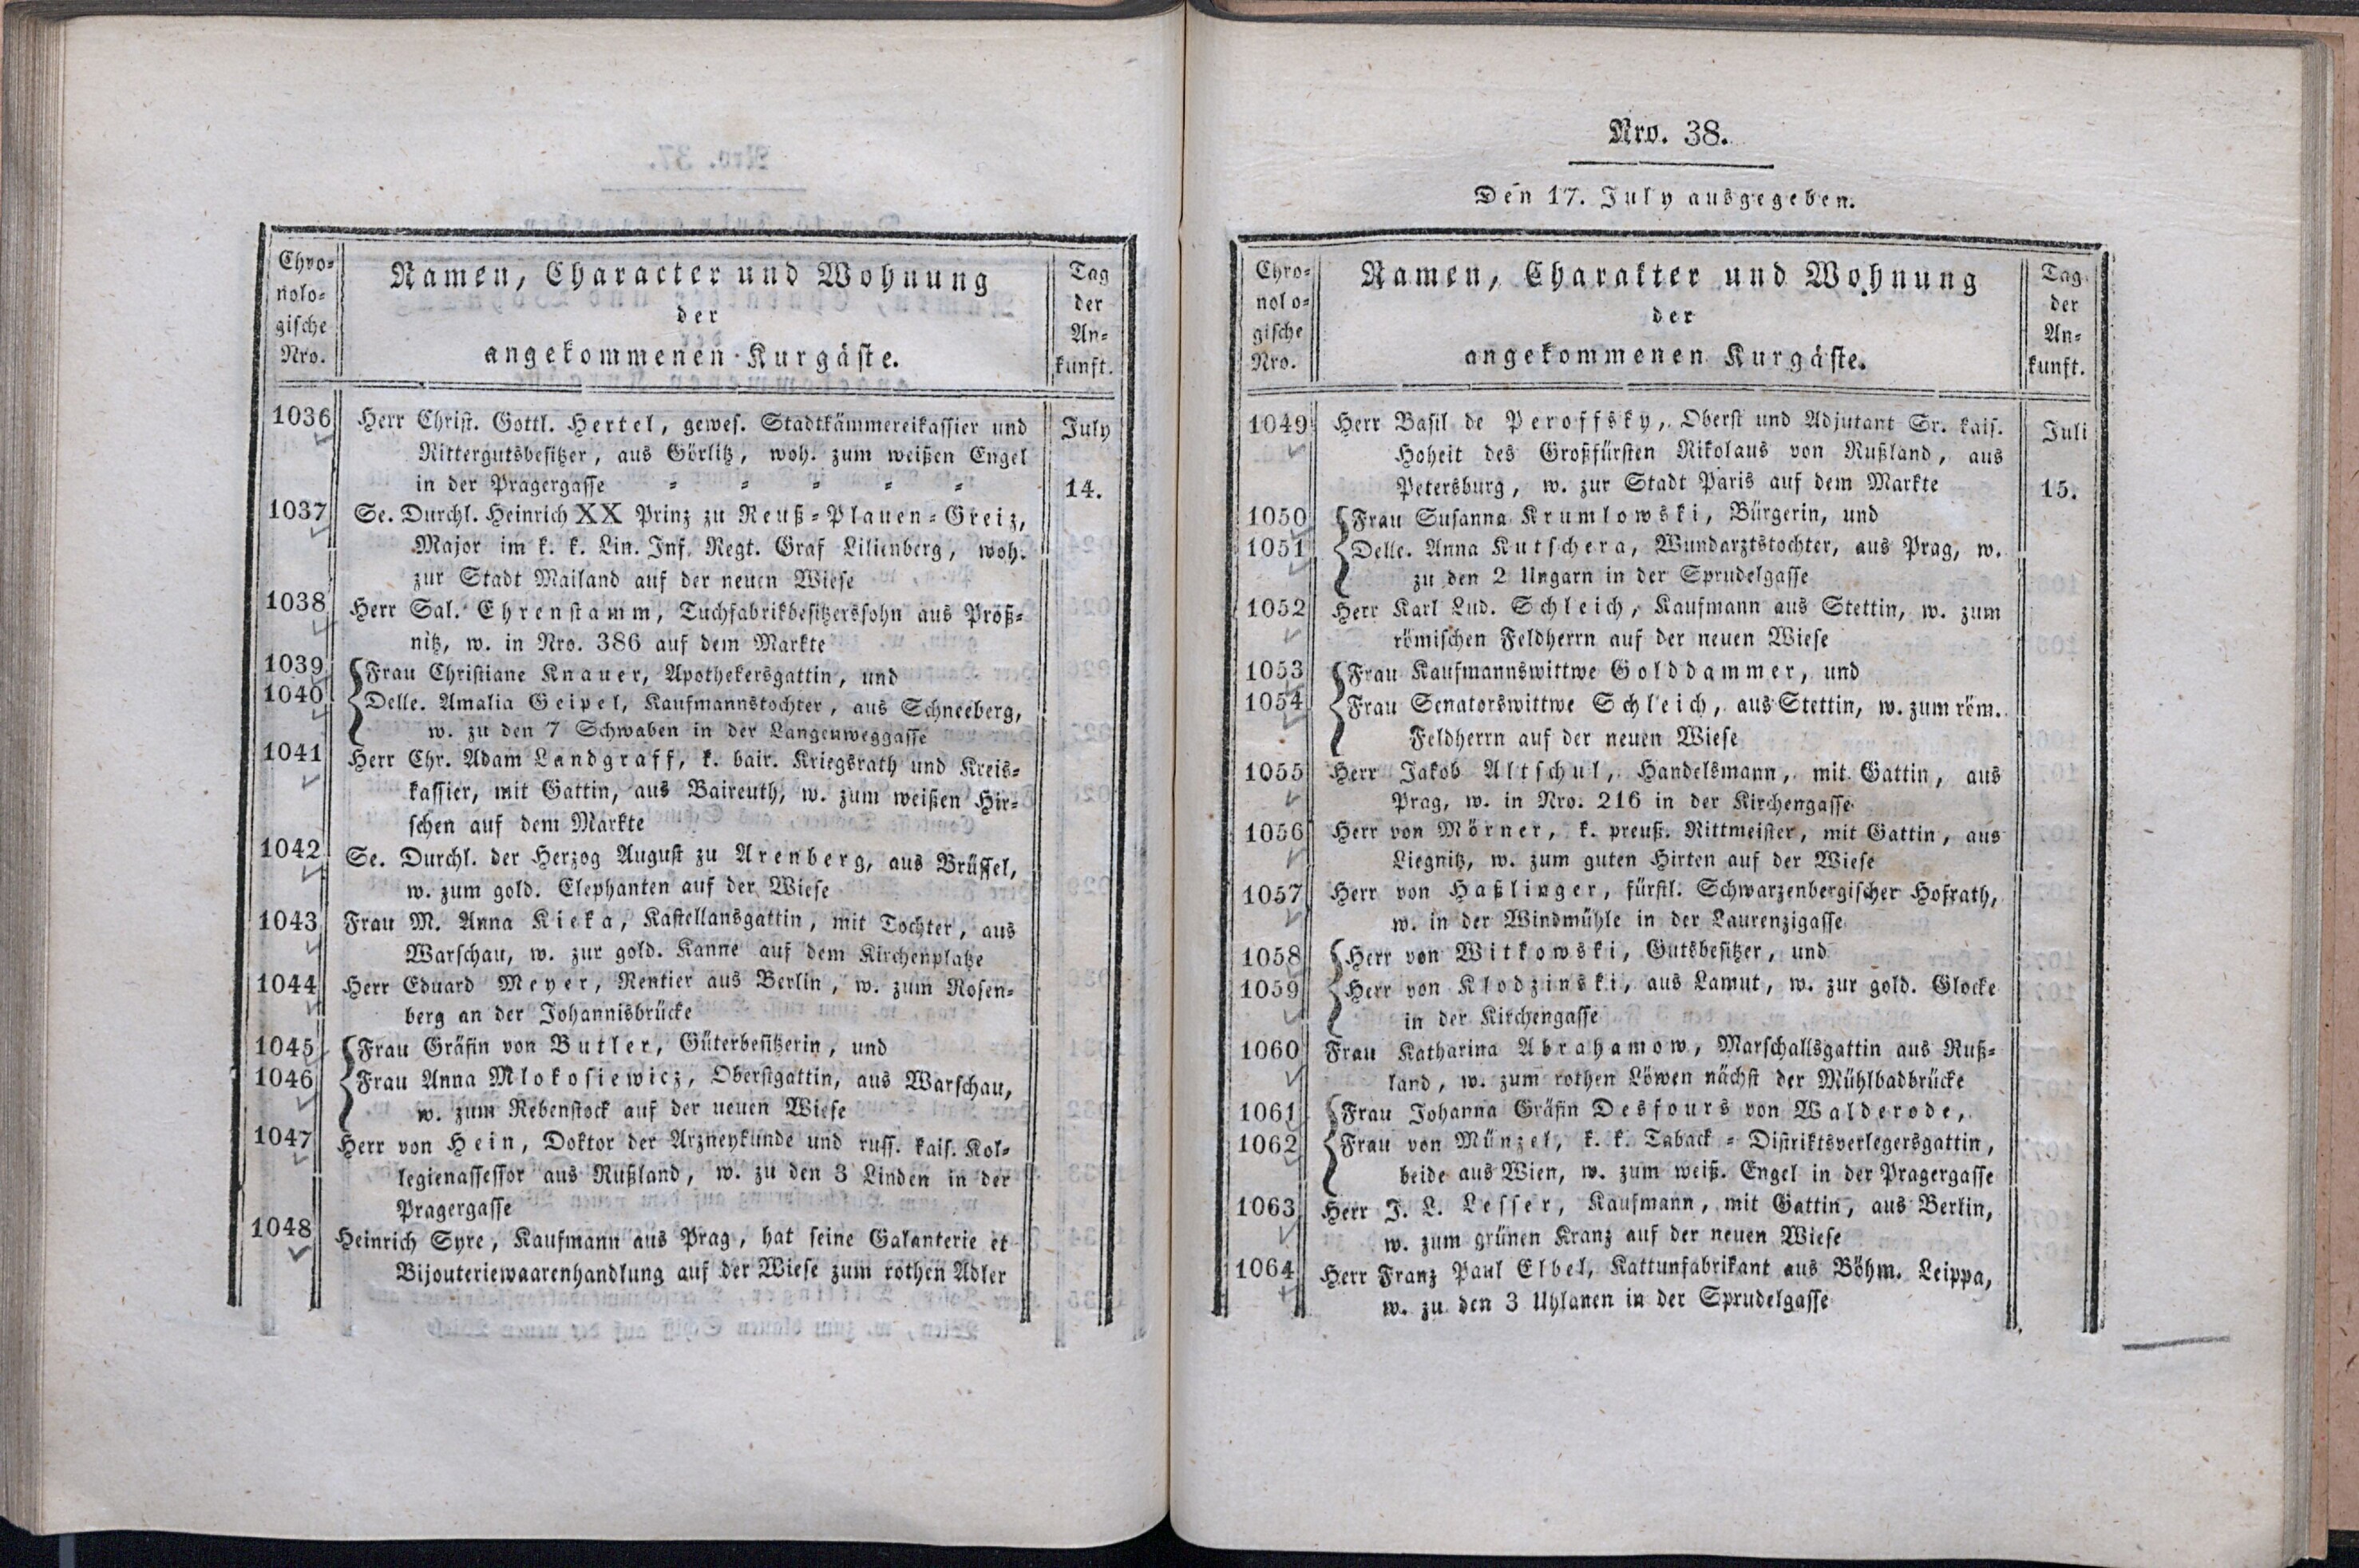 Chro=
nolo=
gische
Nro.
Namen, Character und Wohnung
der
angekommenen Kurgäste.
Tag
der
An=
kunft.
1036 Herr Christ. Gottl. Hertel, gewes. Stadtkämmereikassier und
Rittergutsbesitzer, aus Görlitz, woh. zum weißen Engel
in der Pragergasse = = = = =
July
14.
1037 Se. Durchl. Heinrich XX Prinz zu Reuß=Plauen=Greiz,
Major im k. k. Lin. Inf. Regt. Graf Lilienberg, woh.
zur Stadt Mailand auf der neuen Wiese
1038 Herr Sal. Ehrenstamm, Tuchfabrikbesitzerssohn aus Proß=
nitz, w. in Nro. 386 auf dem Markte
1039 Frau Christiane Knauer, Apothekersgattin, und
1040 Delle. Amalia Geipel, Kaufmannstochter, aus Schneeberg,
w. zu den 7 Schwaben in der Langenweggasse
1041 Herr Chr. Adam Landgraff, k. bair. Kriegsrath und Kreis=
kassier, mit Gattin, aus Baireuth, w. zum weißen Hir=
schen auf dem Markte
1042 Se. Durchl. der Herzog August zu Arenberg, aus Brüssel,
w. zum gold. Elephanten auf der Wiese
1043 Frau M. Anna Kieka, Kastellansgattin, mit Tochter, aus
Warschau, w. zur gold. Kanne auf dem Kirchenplatze
1044 Herr Eduard Meyer, Rentier aus Berlin, w. zum Rosen=
berg an der Johannisbrücke
1045 Frau Gräfin von Butler, Güterbesitzerin, und
1046 Frau Anna Mlokosiewicz, Oberstgattin, aus Warschau,
w. zum Rebenstock auf der neuen Wiese
1047 Herr von Hein, Doktor der Arzneykunde und russ. kais. Kol=
legienassessor aus Rußland, w. zu den 3 Linden in der
Pragergasse
1048 Heinrich Syre, Kaufmann aus Prag, hat seine Galanterie et
Bijouteriewaarenhandlung auf der Wiese zum rothen Adler
Nro. 38.
Den 17. July ausgegeben.
Chro=
nolo=
gische
Nro.
Namen, Charakter und Wohnung
der
angekommenen Kurgäste.
Tag
der
An=
kunft.
1049 Herr Basil de Peroffsky, Oberst und Adjutant Sr. kais.
Hoheit des Großfürsten Nikolaus von Rußland, aus
Petersburg, w. zur Stadt Paris auf dem Markte
Juli
15.
1050 Frau Susanna Krumlowski, Bürgerin, und
1051 Delle. Anna Kutschera, Wundarztstochter, aus Prag, w.
zu den 2 Ungarn in der Sprudelgasse
1052 Herr Karl Lud. Schleich, Kaufmann aus Stettin, w. zum
römischen Feldherrn auf der neuen Wiese
1053 Frau Kaufmannswittwe Golddammer, und
1054 Frau Senatorswittwe Schleich, aus Stettin, w. zum röm.
Feldherrn auf der neuen Wiese
1055 Herr Jakob Altschul, Handelsmann, mit Gattin, aus
Prag, w. in Nro. 216 in der Kirchengasse
1056 Herr von Mörner, k. preuß. Rittmeister, mit Gattin, aus
Liegnitz, w. zum guten Hirten auf der Wiese
1057 Herr von Haßlinger, fürstl. Schwarzenbergischer Hofrath,
w. in der Windmühle in der Laurenzigasse
1058 Herr von Witkowski, Gutsbesitzer, und
1059 Herr von Klodzinski, aus Lamut, w. zur gold. Glocke
in der Kirchengasse
1060 Frau Katharina Abrahamow, Marschallsgattin aus Ruß=
land, w. zum rothen Löwen nächst der Mühlbadbrücke
1061 Frau Johanna Gräfin Desfours von Walderode,
1062 Frau von Münzel, k. k. Taback=Distriktsverlegersgattin,
beide aus Wien, w. zum weiß. Engel in der Pragergasse
1063 Herr J. L. Lesser, Kaufmann, mit Gattin, aus Berlin,
w. zum grünen Kranz auf der neuen Wiese
1064 Herr Franz Paul Elbel, Kattunfabrikant aus Böhm. Leippa,
w. zu den 3 Uhlanen in der Sprudelgasse